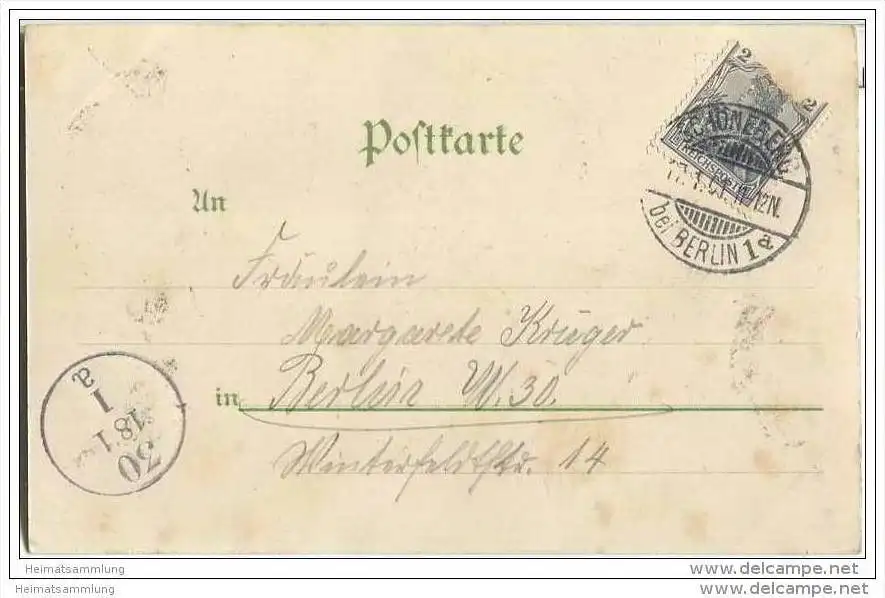 Postkarte
An
Fräulein
Margarete Krüger
in Berlin W. 30.
Winterfeldtstr. 14
2 2
REICHSPOST
SCHÖNEBERG
11-12N.
bei BERLIN 1a
a
1
18 1
30
Heimatsammlung
www.delcampe.net
Heimatsammlung
www.delcampe.net